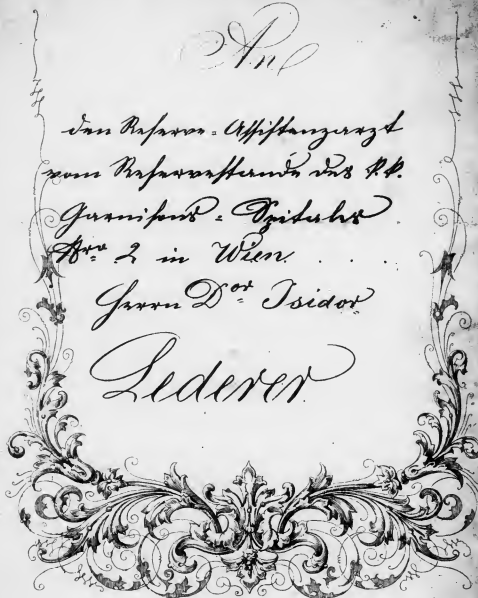 An
den Reserve-Assistenzarzt
vom Reservestande des k.k.
Garnisons-Spitales
Nro 2 in Wien.
Herrn Dor Isidor
Lederer